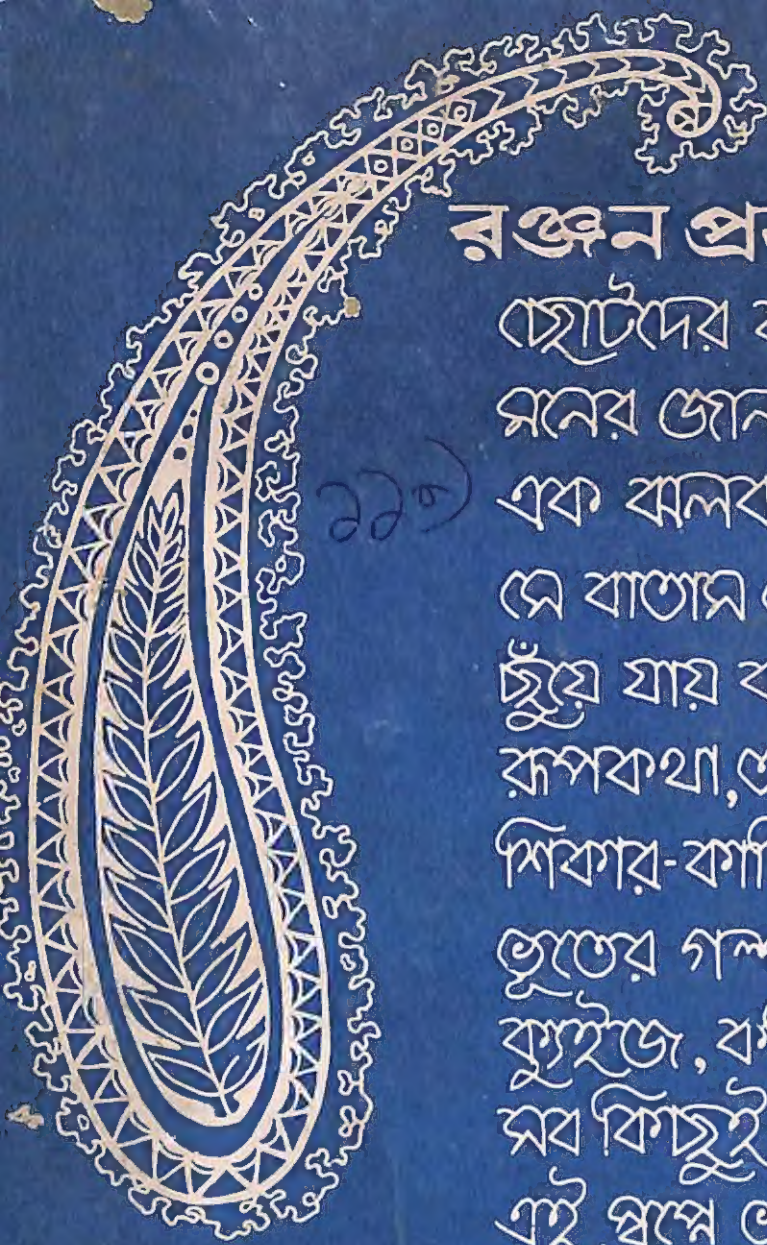 রঞ্জন প্র
ছোটদের
মনের জান
এক ঝলক
সে বাতাস
ছুঁয়ে যায়
রূপকথা,
শিকার-কাহি
ভূতের গল্প
ক্যুইজে,
সব কিছুই
এই স্বপ্নে